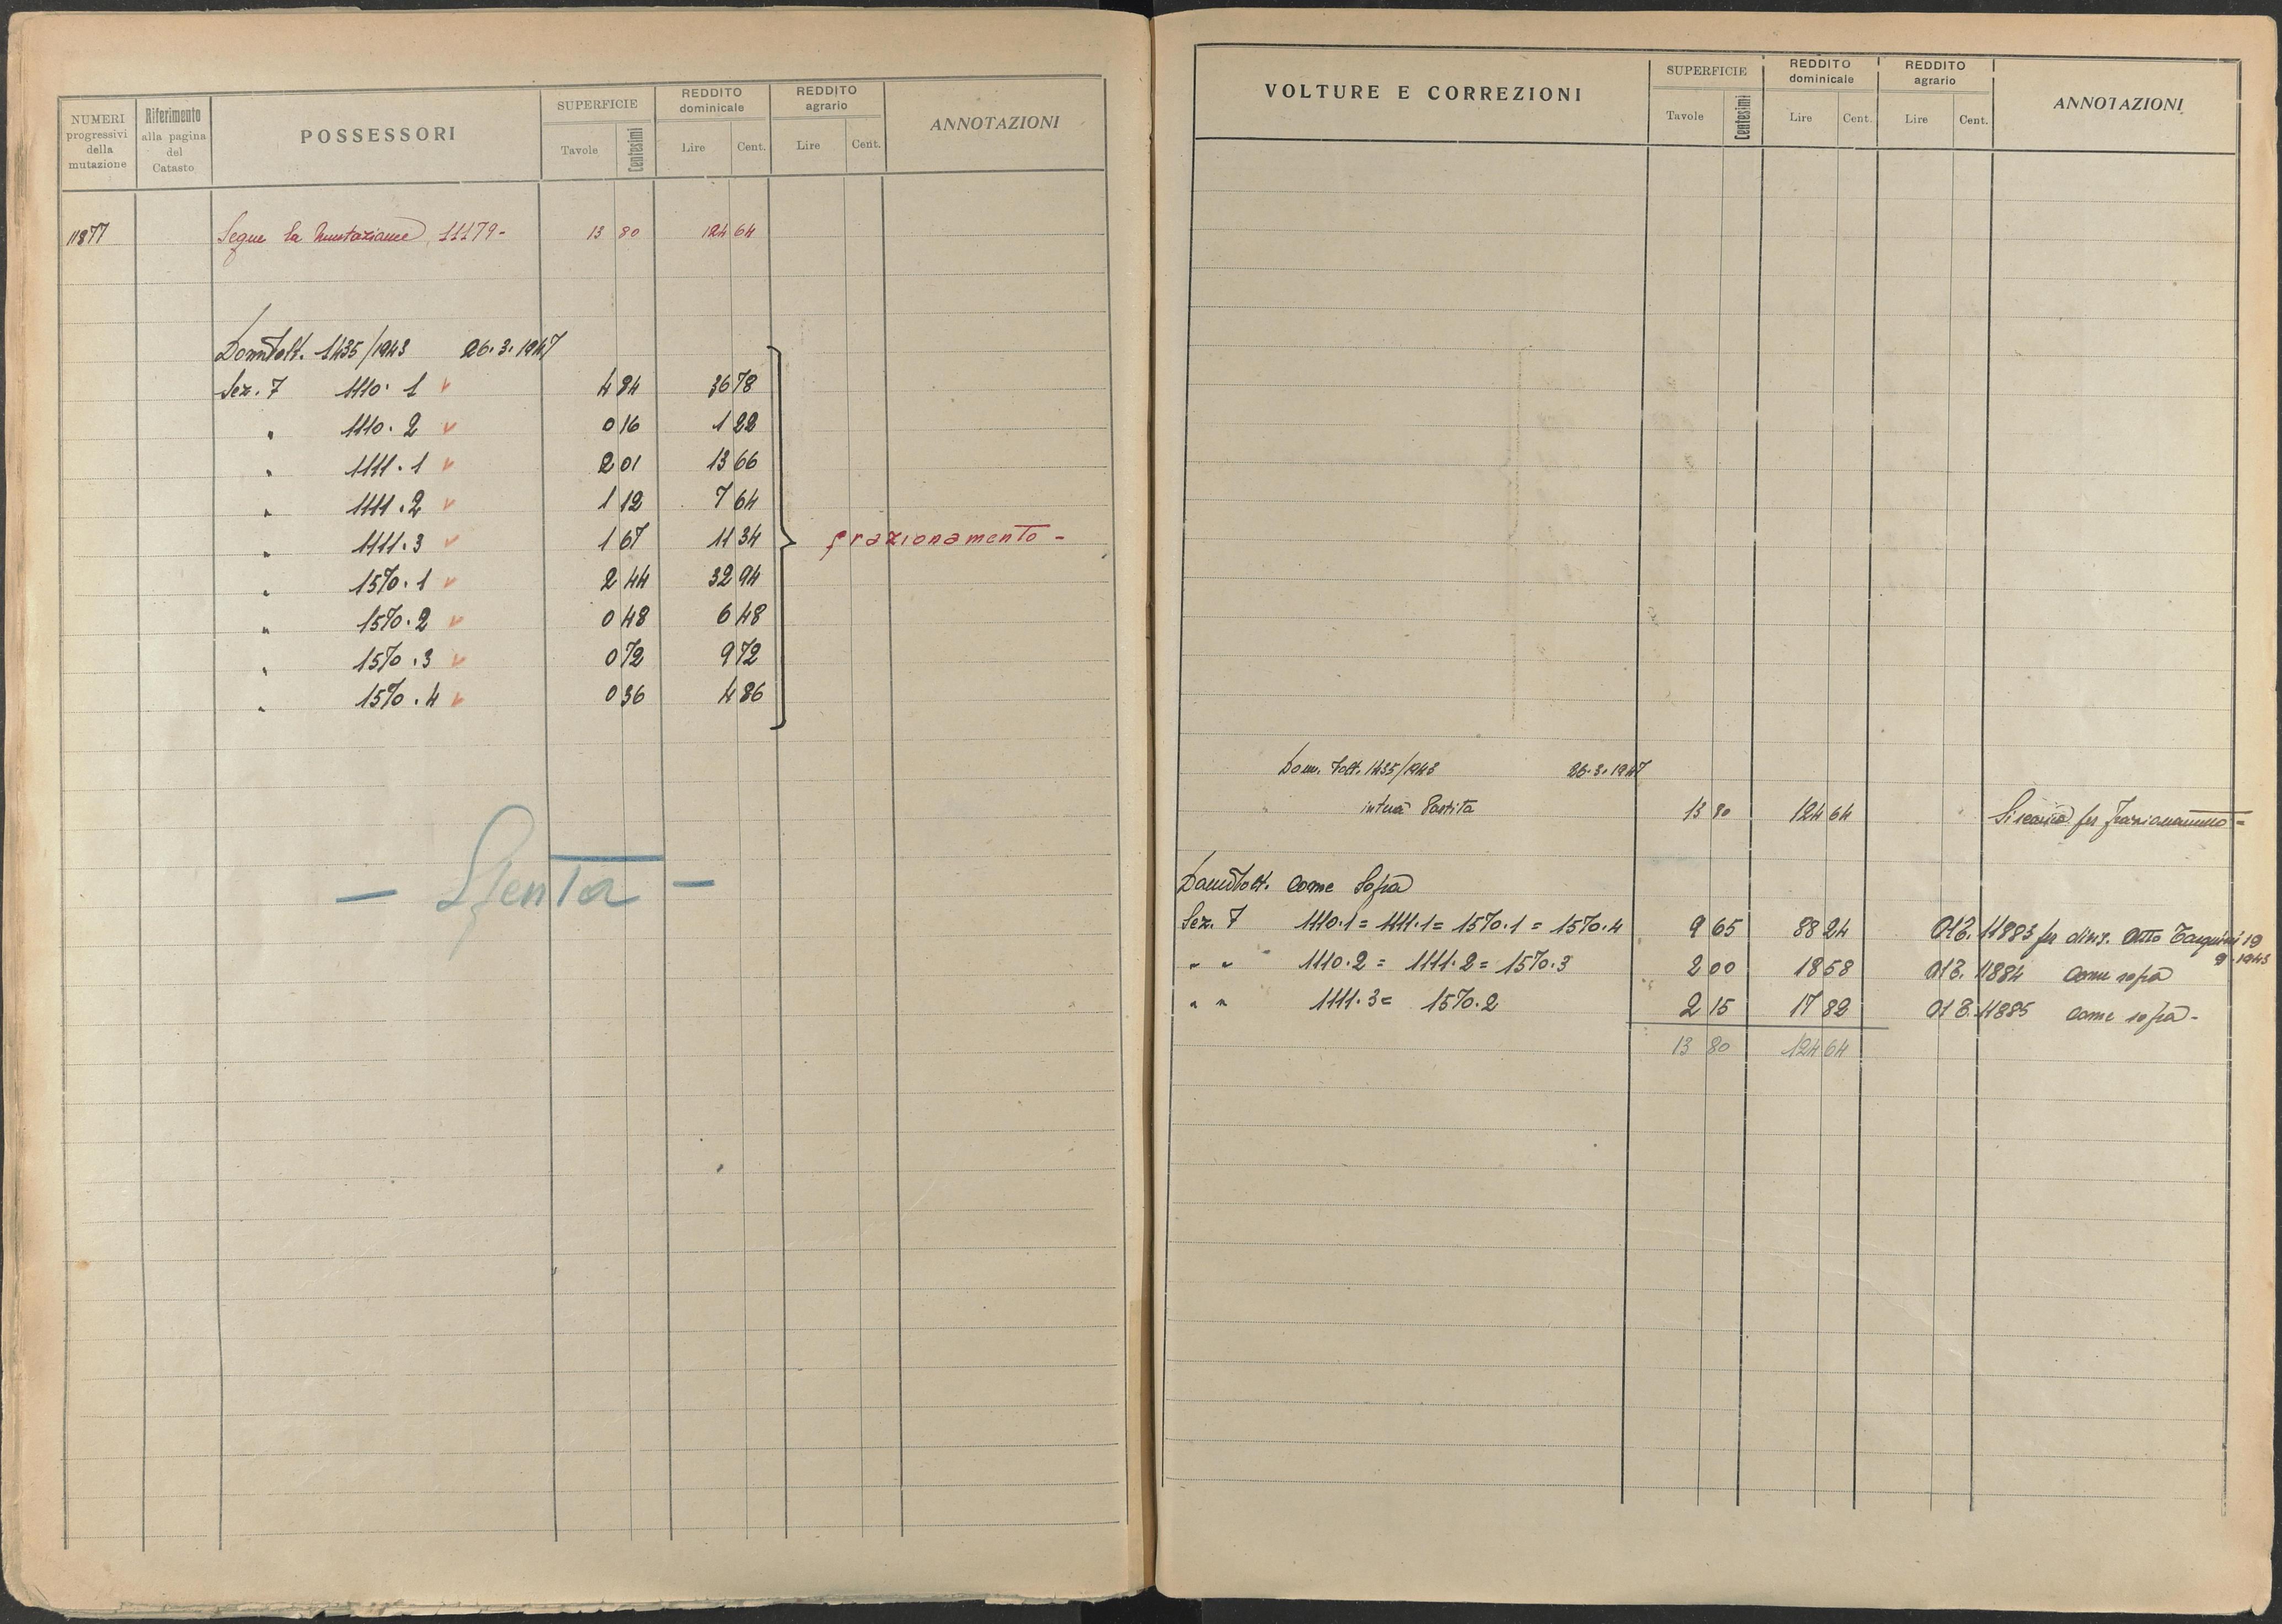 NUMERI progressivi della mutazione
Riferimento alla pagina del Catasto
POSSESSORI
SUPERFICIE
Tavole Centesimi
REDDITO dominicale
Lire Cent.
REDDITO agrario
Lire Cent.
ANNOTAZIONI
11877 Segue la Mutazione 11179- 13 80 124 64
Dom Volt. 1435/1943 26.3.1947
Sez. 7 1110. 1 v 4 84 36 78
" 1110. 2 v 0 16 1 22
" 1111. 1 v 2 01 13 66
" 1111. 2 v 1 12 7 64
" 1111. 3 v 1 67 11 34 frazionamento -
" 1570. 1 v 2 44 32 94
" 1570. 2 v 0 48 6 48
" 1570. 3 v 0 72 9 72
" 1570. 4 v 0 36 4 86
- Spenta -
VOLTURE E CORREZIONI
SUPERFICIE
Tavole Centesimi
REDDITO dominicale
Lire Cent.
REDDITO agrario
Lire Cent.
ANNOTAZIONI
Dom. Volt. 1435/1943 26.3.1947
intera Partita 13 80 124 64 Si scarica per frazionamento =
Dom Volt. Come Sopra
Sez. 7 1110.1 = 1111.1 = 1570.1 = 1570.4 9 65 88 24 11883 per divis. Atto Tarquini 19
9. 1943
" " 1110.2 = 1111.2 = 1570.3 2 00 18 58 11884 Come sopra
" " 1111.3 = 1570.2 2 15 17 82 11885 Come sopra -
13 80 124 64